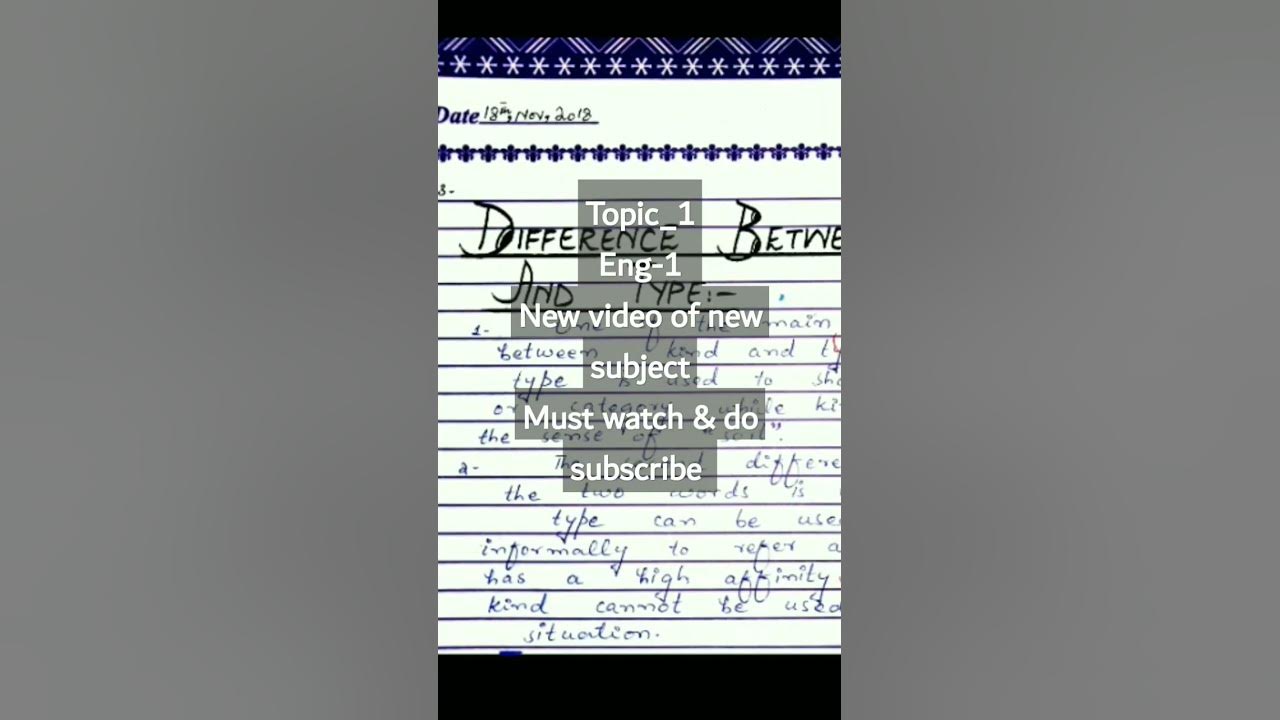 Date 18th, Nov, 2018
3-
DIFFERENCE BETWE
AND TYPE:-
Topic_1
Eng-1
New video of new
subject
Must watch & do
subscribe
1- One of the main
between kind and ty
type is used to sho
or category while ki
the sense of "soil".
2- The differe
the two words is
type can be use
informally to refer a
has a high affinity
kind cannot be used
situation.